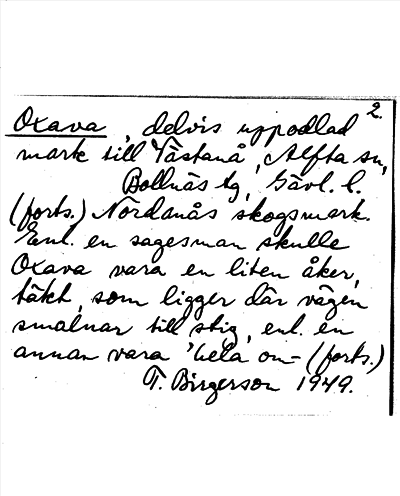 2.
Oxava, delvis uppodlad
mark till Västanå, Alfta sn,
Bollnäs tg, Gävl. l.
(forts.) Nordanås skogsmark.
Enl. en sagesman skulle
Oxava vara en liten åker,
täkt, som ligger där vägen
smalnar till stig, enl. en
annan vara 'hela on- (forts.)
T. Birgerson 1949.